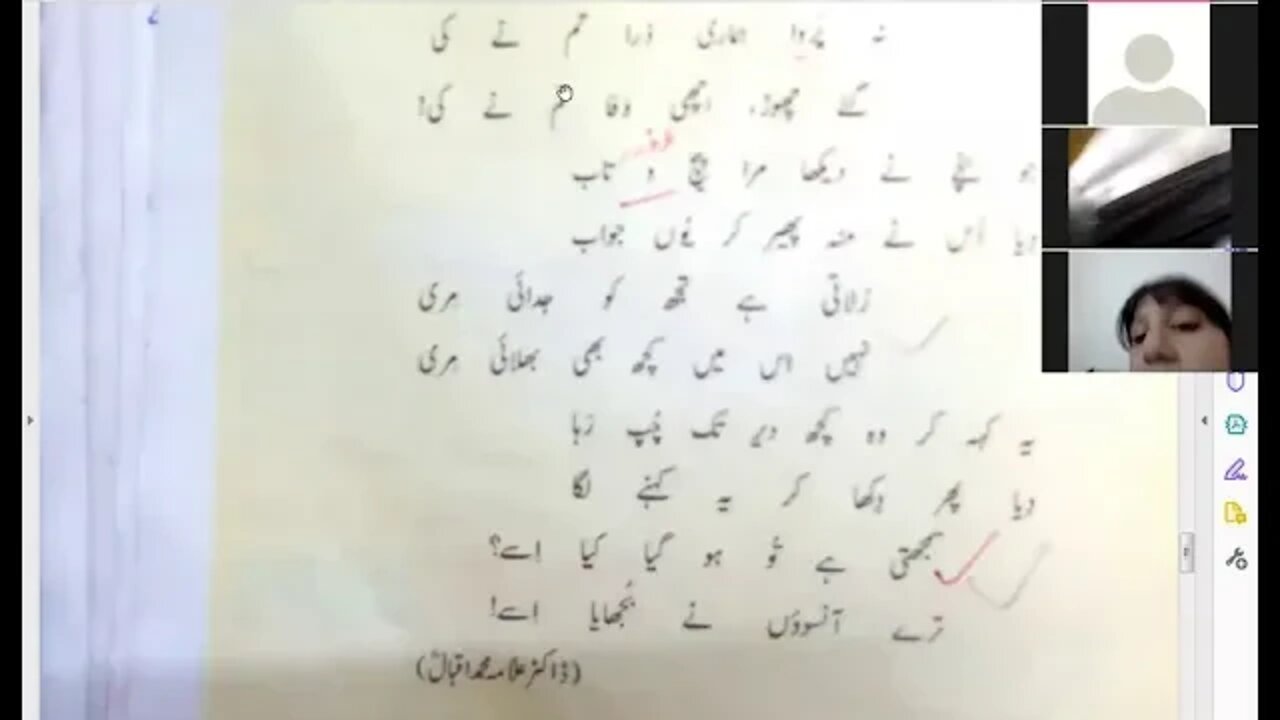 نہ پَروا ہماری ذرا تم نے کی
گئے چھوڑ، اچھی وفا تم نے کی!
جو بچے نے دیکھا مرا پیچ و تاب
دیا اُس نے منہ پھیر کر یُوں جواب
رُلاتی ہے تجھ کو جدائی مری
نہیں اس میں کچھ بھی بھلائی مری
یہ کہہ کر وہ کچھ دیر تک چُپ رَہا
دیا پھر دِکھا کر یہ کہنے لگا
سمجھتی ہے تُو ہو گیا کیا اِسے؟
ترے آنسوؤں نے بُجھایا اسے!
(ڈاکٹر علامہ محمد اقبالؒ)